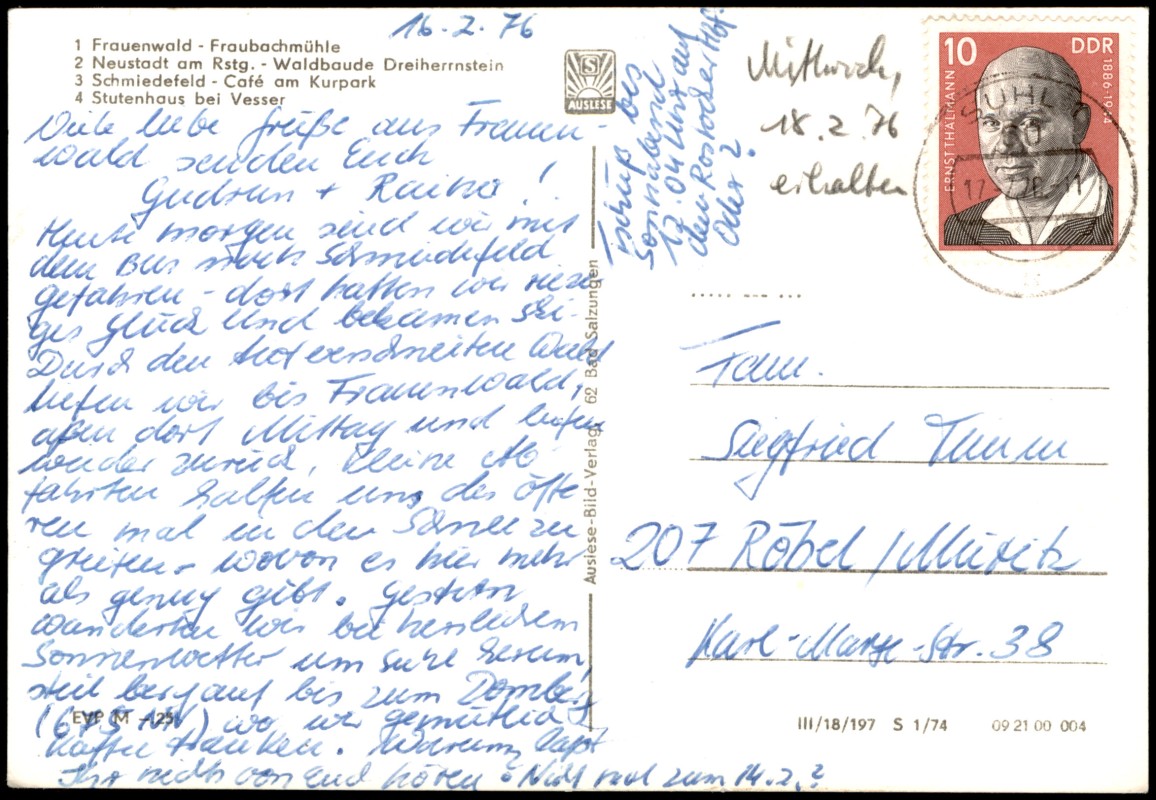 16.2.76
1 Frauenwald - Fraubachmühle
2 Neustadt am Rstg. - Waldbaude Dreiherrnstein
3 Schmiedefeld - Café am Kurpark
4 Stutenhaus bei Vesser
S
AUSLESE
Viele liebe Grüße aus Frauen-
wald senden Euch
Gudrun + Raino!
Heute morgen sind wir mit
dem Bus nach Schmiedefeld
gefahren - dort hatten wir riesi-
ges Glück und bekamen Ski.
Durch den tiefverschneiten Wald
liefen wir bis Frauenwald,
aßen dort Mittag und liefen
wieder zurück, kleine Ab
fahrten halfen uns des öfte
ren mal in den Schnee zu
greifen - wovon es hier mehr
als genug gibt. Gestern
wanderten wir bei herrlichem
Sonnenwetter um Suhl herum,
steil bergauf bis zum Domberg
(675 m) wo wir gemütlich
Kaffee tranken. Warum laßt
Ihr nichts von Euch hören? Nicht mal zum 14.2.?
EVP M -,25
Tschüß bis
Sonnabend
17.04 Uhr auf
dem Rostocker Hbf.
Oder?
Mittwoch,
18.2.76
erhalten
10
DDR
ERNST THÄLMANN
1886-1944
SUHL
17.-2.76-11
Auslese-Bild-Verlag 62 Bad Salzungen
Fam.
Siegfried Timm
207 Röbel/Müritz
Karl-Marx-Str. 38
III/18/197 S 1/74
09 21 00 004